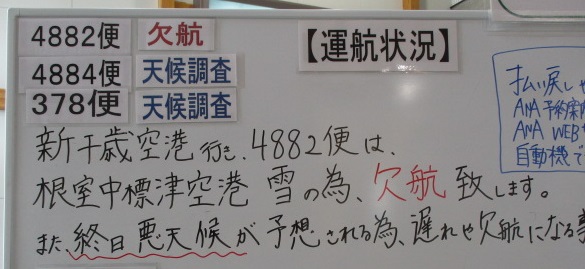 4882便 欠航
4884便 天候調査
378便 天候調査
【運航状況】
新千歳空港行き、4882便は、
根室中標津空港 雪の為、欠航致します。
また、終日悪天候が予想される為、遅れや欠航になる
払い戻しや
ANA予約案内
ANA WEB
自動機で